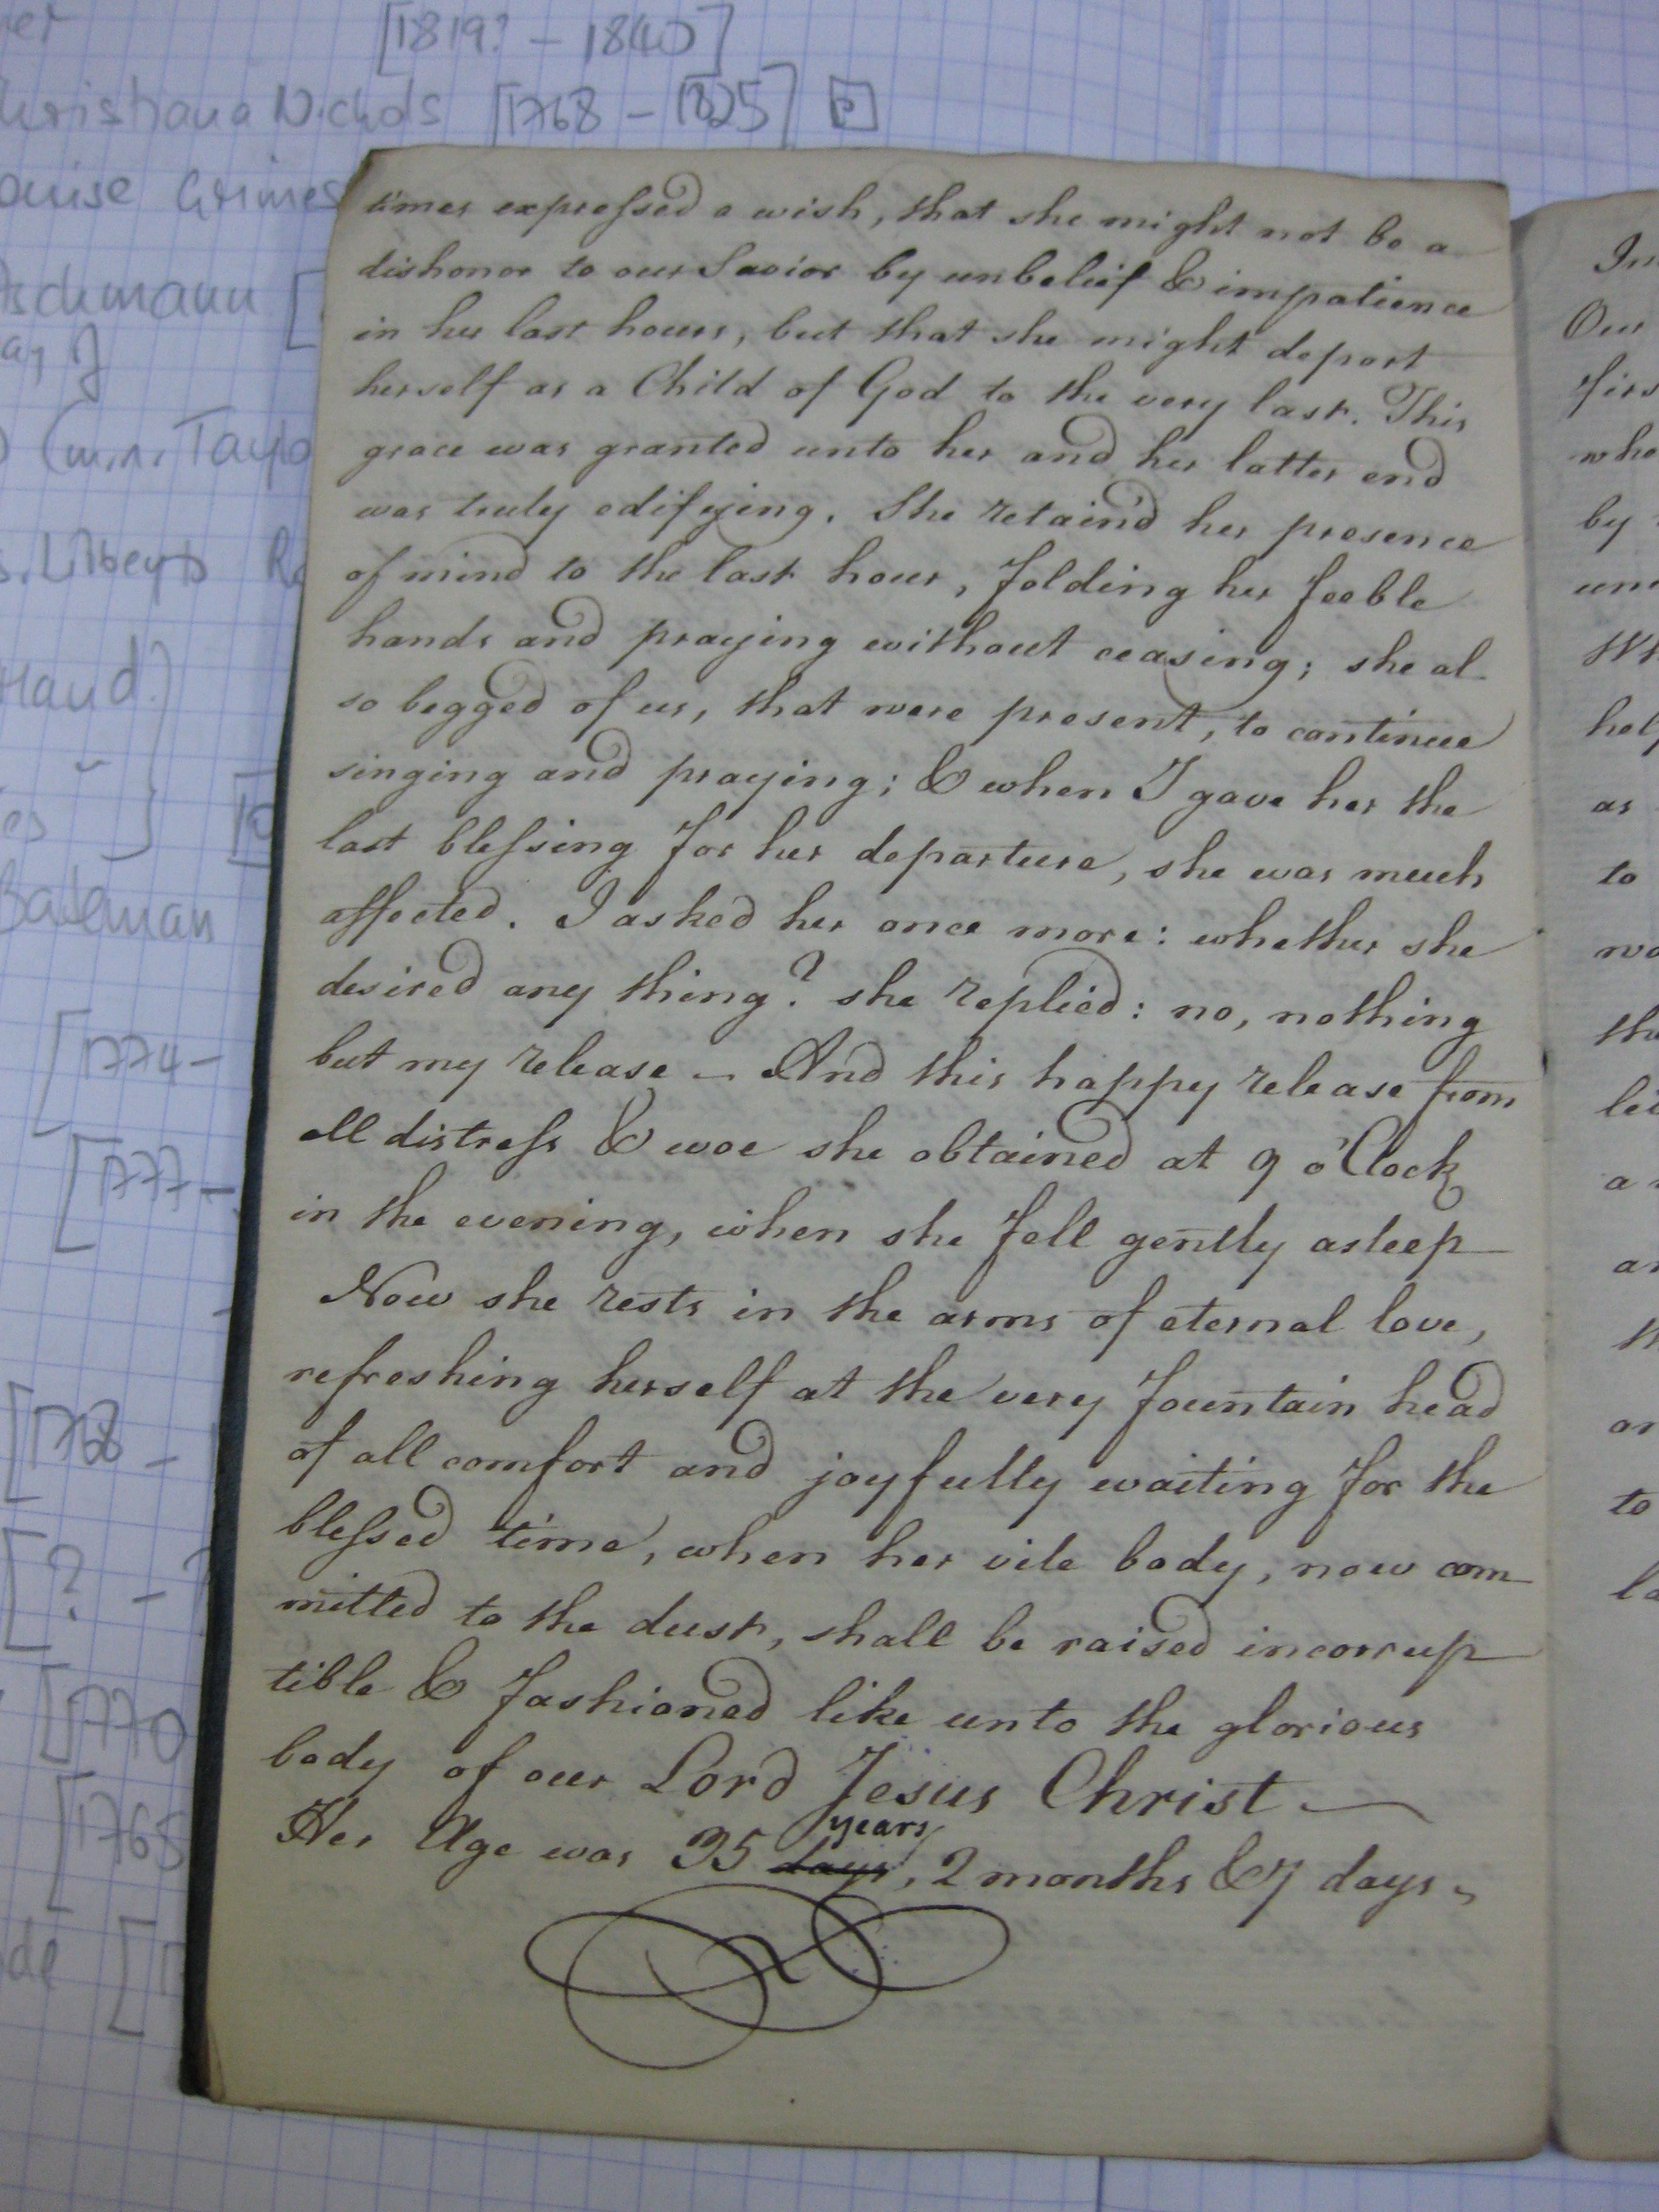 [1819? – 1840]
Christiana Nichols [1768 – 1825] P
ouise Grimes
times expressed a wish, that she might not be a
dishonor to our Savior by unbeleif & impatience
in her last hours, but that she might deport
herself as a Child of God to the very last. This
grace was granted unto her and her latter end
was truly edifying. She retain'd her presence
of mind to the last hour, folding her feeble
hands and praying without ceasing; she al-
so begged of us, that were present, to continue
singing and praying; & when I gave her the
last blessing for her departure, she was much
affected. I asked her once more: whether she
desired any thing? she replied: no, nothing
but my release – And this happy release from
all distress & woe she obtained at 9 o'Clock
in the evening, when she fell gently asleep
Now she rests in the arms of eternal love,
refreshing herself at the very fountain head
of all comfort and joyfully waiting for the
blessed time, when her vile body, now com
mitted to the dust, shall be raised incorrup
tible & fashioned like unto the glorious
body of our Lord Jesus Christ —
Her Age was 35 days years, 2 months & 7 days –
schmann [
(m.n. Taylo
Hand.)
Bateman
[1774–
[1777–
[1768 –
[? – ?
[1770
[1765
In
Our
firs
who
by
hel
as
to
the
a
to